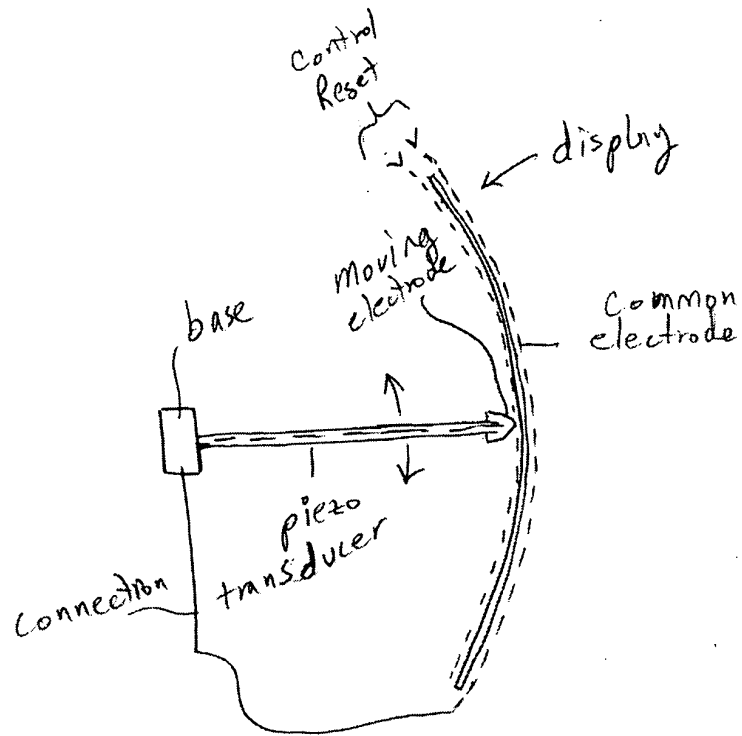 Control
Reset
display
moving
electrode
Common
electrode
base
piezo
transducer
Connection